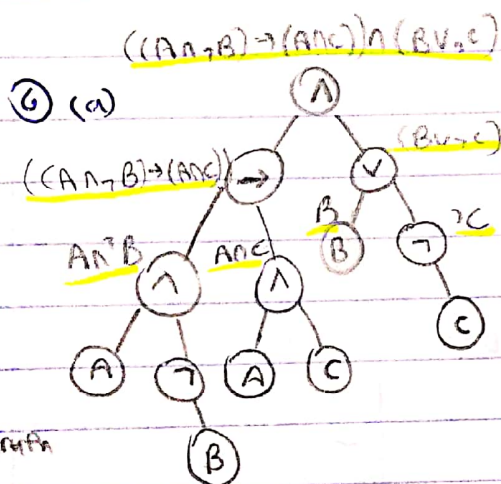 ((A∧¬B)→(A∧C))∧(B∨¬C)
6 (a)
∧
(B∨¬C)
((A∧¬B)→(A∧C))
→
∨
B
¬C
A∧¬B
A∧C
B
¬
∧
∧
C
A
¬
A
C
B